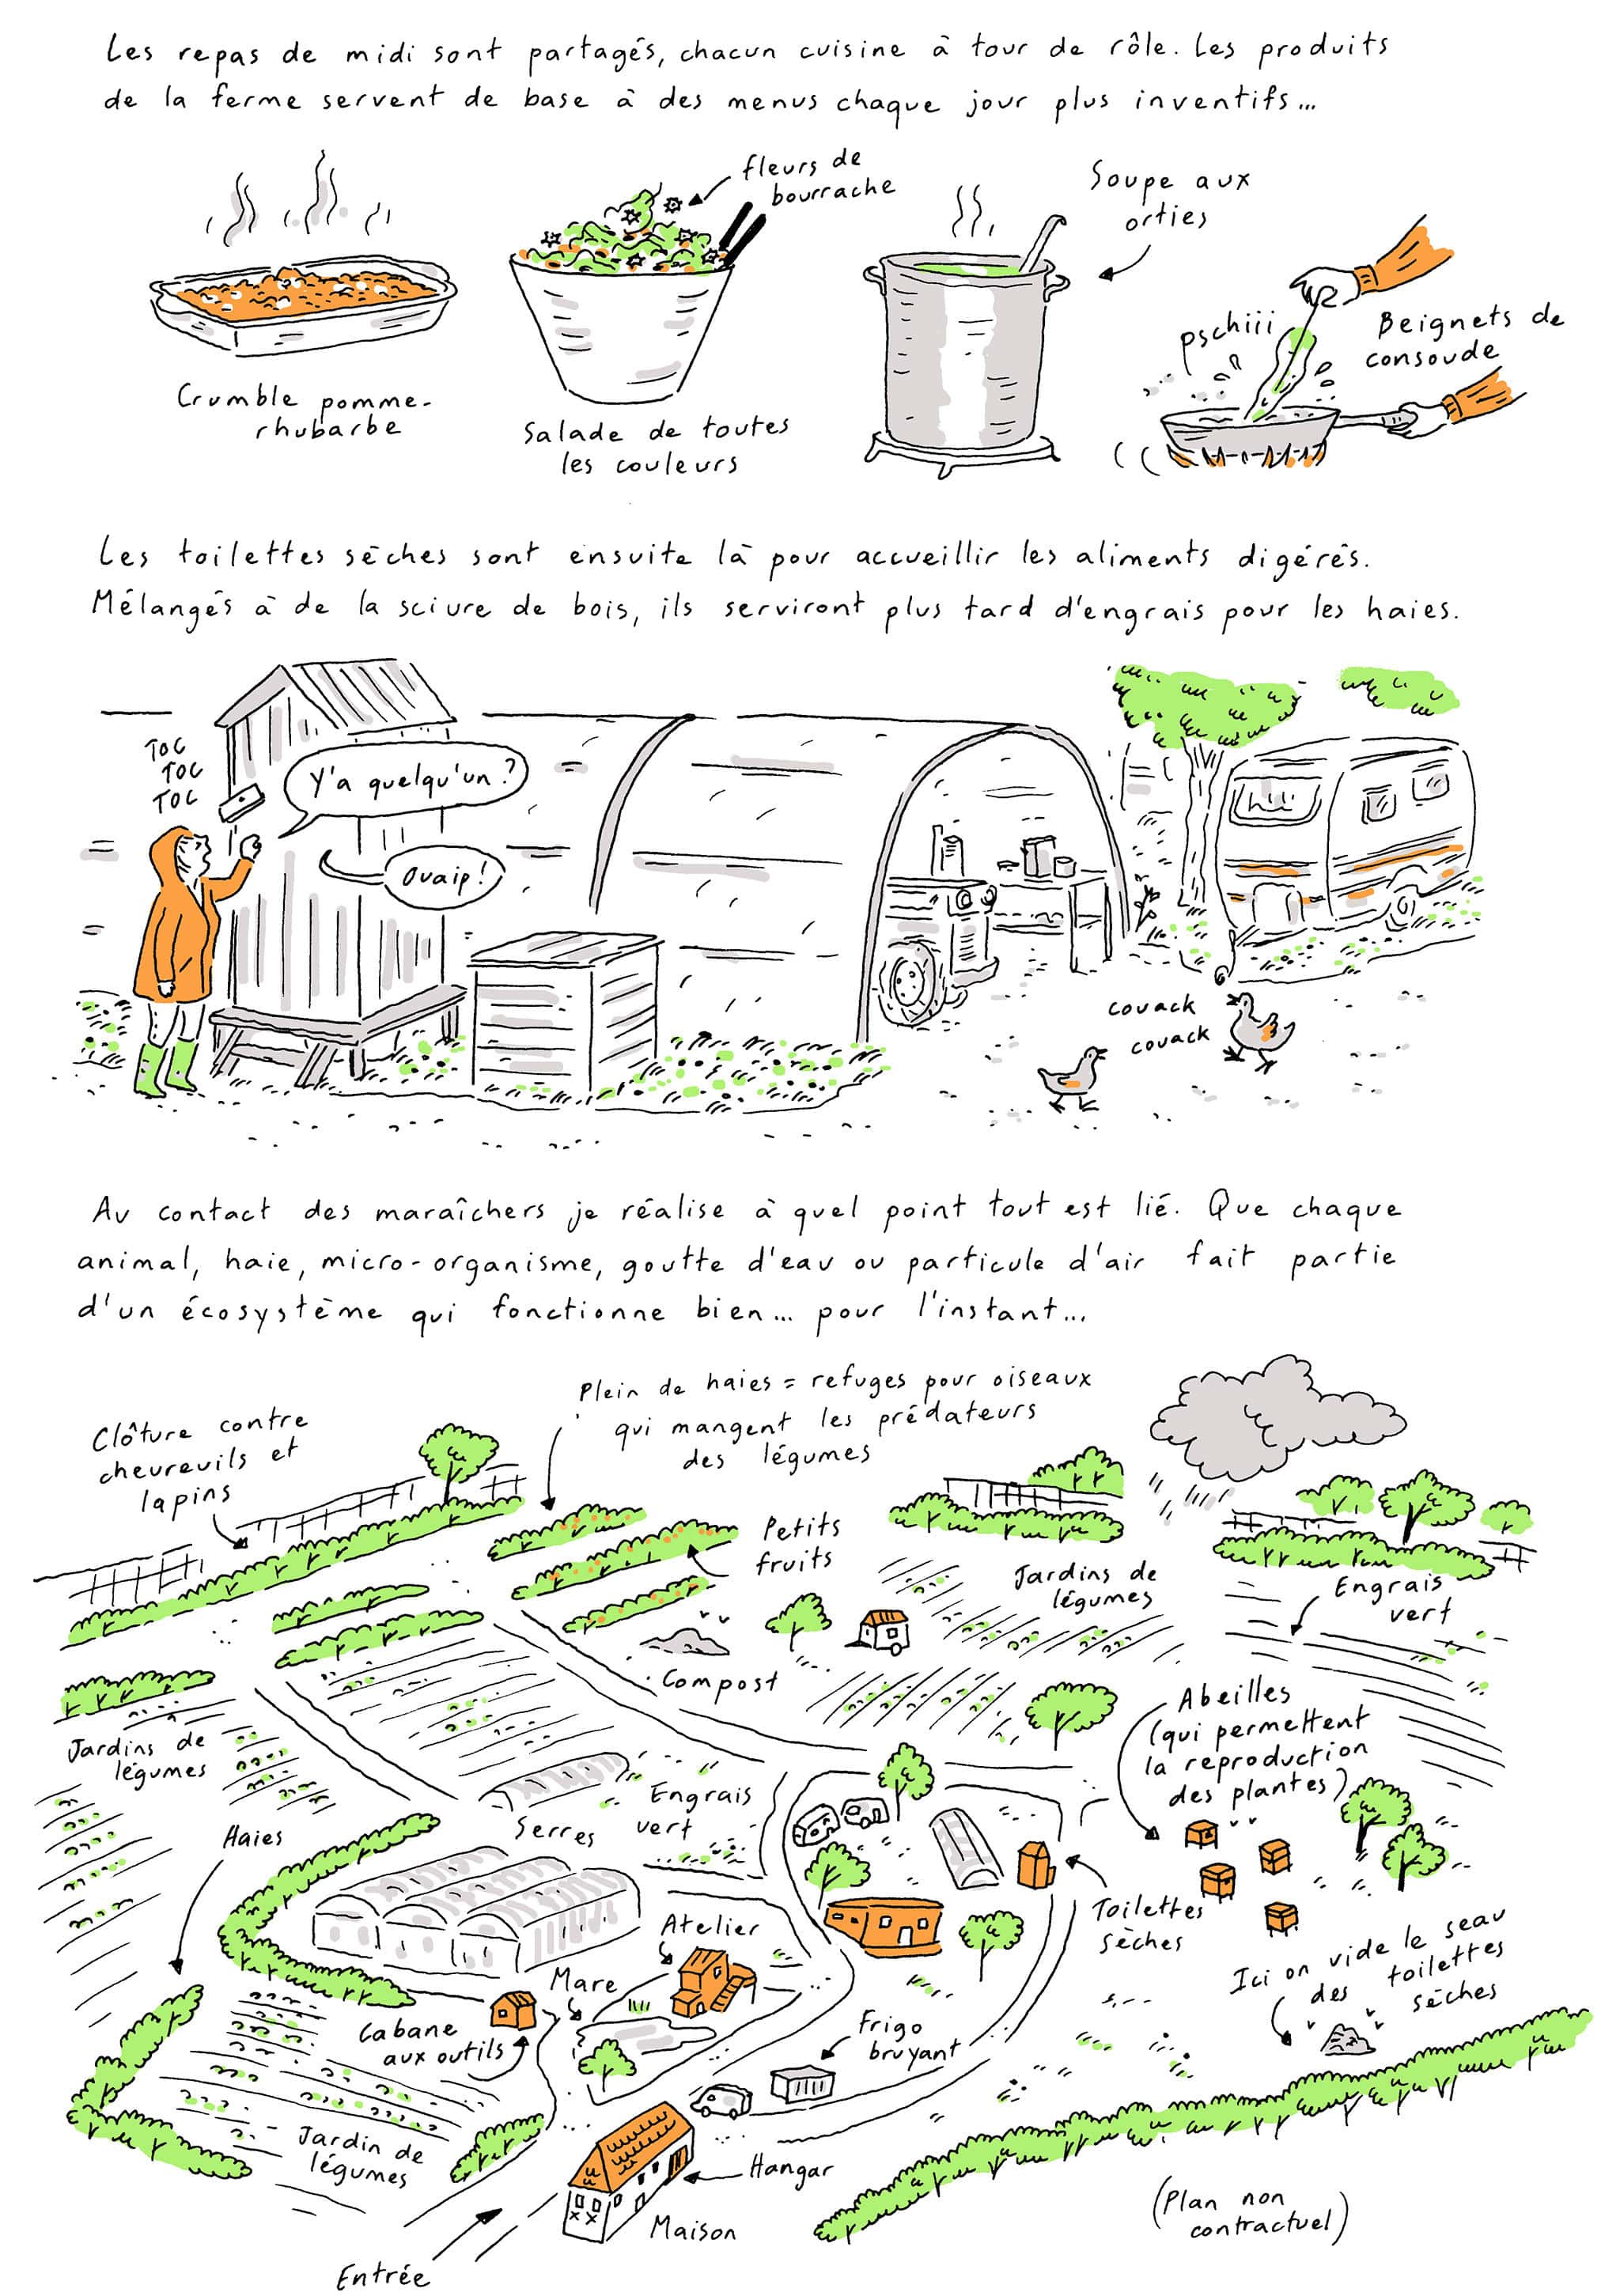 Les repas de midi sont partagés, chacun cuisine à tour de rôle. Les produits
de la ferme servent de base à des menus chaque jour plus inventifs...
fleurs de
bourrache
Soupe aux
orties
pschiii
Beignets de
consoude
Crumble pomme-
rhubarbe
Salade de toutes
les couleurs
Les toilettes sèches sont ensuite là pour accueillir les aliments digérés.
Mélangés à de la sciure de bois, ils serviront plus tard d'engrais pour les haies.
TOC
TOC
TOC
Y'a quelqu'un ?
Ouaip !
couack
couack
Au contact des maraîchers je réalise à quel point tout est lié. Que chaque
animal, haie, micro-organisme, goutte d'eau ou particule d'air fait partie
d'un écosystème qui fonctionne bien... pour l'instant...
Plein de haies = refuges pour oiseaux
qui mangent les prédateurs
des légumes
Clôture contre
chevreuils et
lapins
Petits
fruits
Jardins de
légumes
Engrais
vert
Compost
Abeilles
(qui permettent
la reproduction
des plantes)
Jardins de
légumes
Engrais
vert
Serres
Haies
Atelier
Toilettes
sèches
Mare
Ici on vide le seau
des toilettes
sèches
Cabane
aux outils
Frigo
bruyant
Jardin de
légumes
Hangar
Maison
(Plan non
contractuel)
Entrée